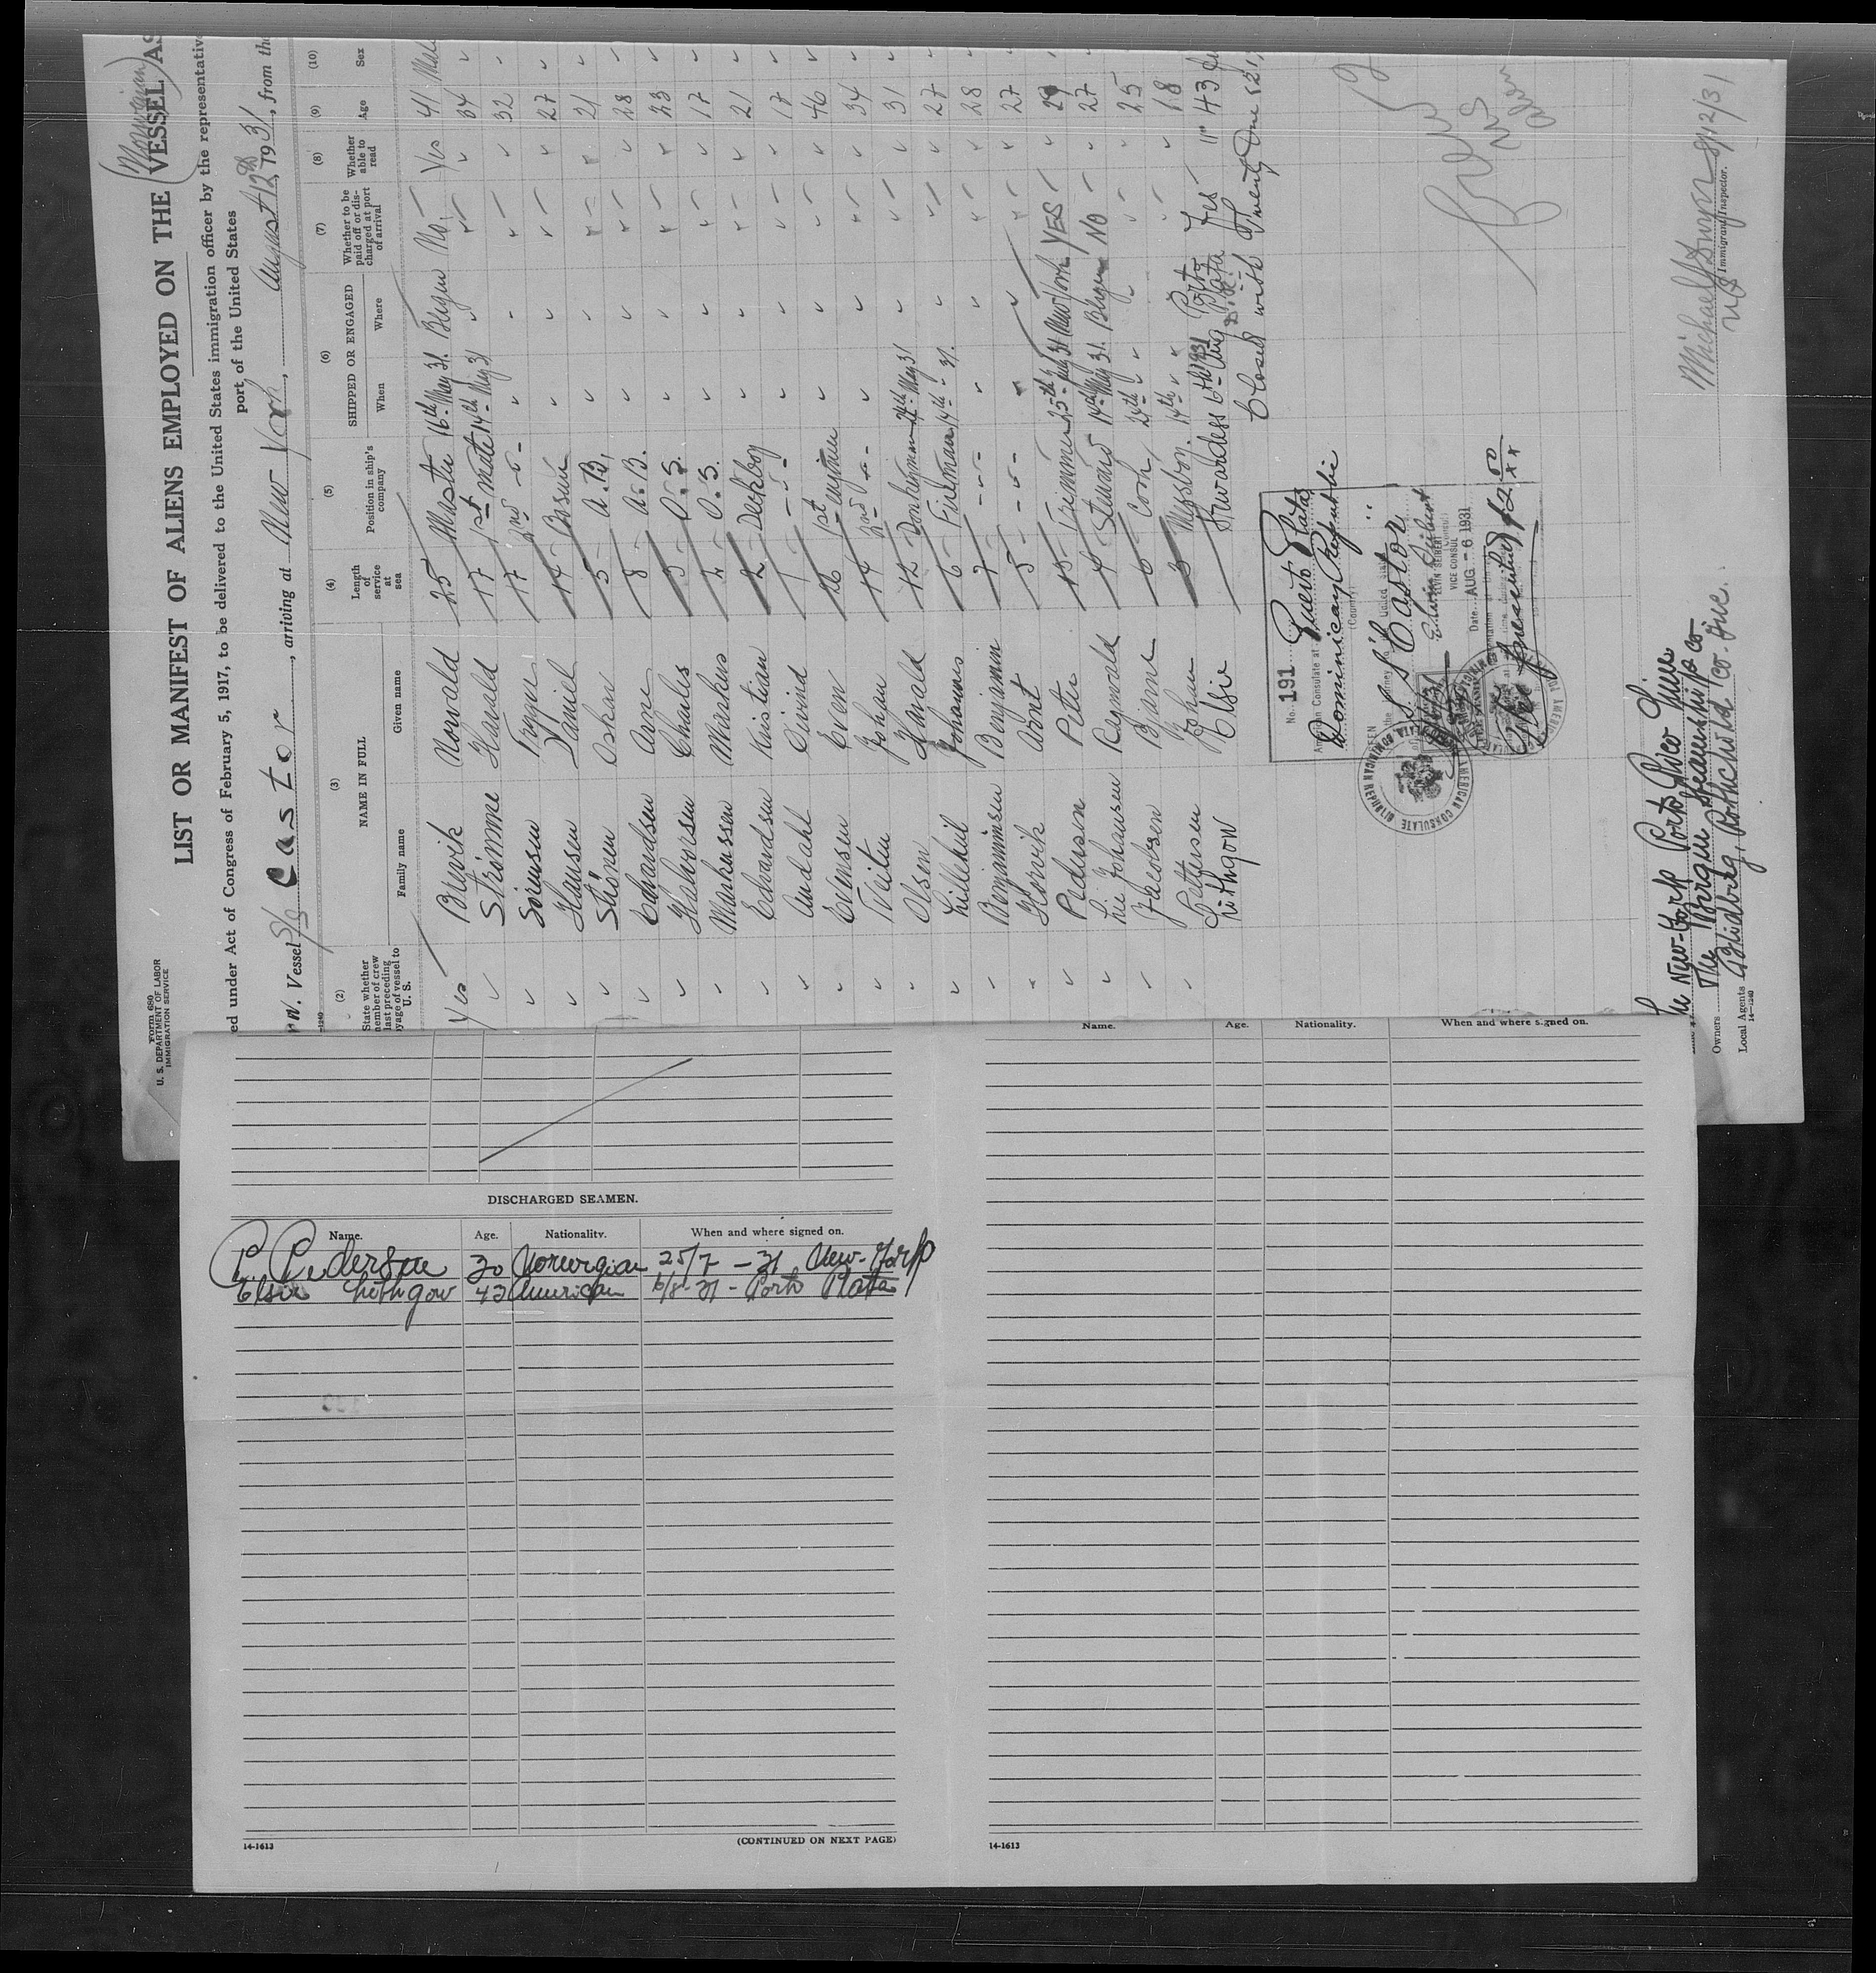 Form 680
U. S. DEPARTMENT OF LABOR
IMMIGRATION SERVICE
(Norwegian)
LIST OR MANIFEST OF ALIENS EMPLOYED ON THE VESSEL AS
ed under Act of Congress of February 5, 1917, to be delivered to the United States immigration officer by the representativ
port of the United States
Vessel S/S Castor, arriving at New York, August 12th, 1931, from th
(2) (3) (4) (5) (6) (7) (8) (9) (10)
State whether member of crew last preceding voyage of vessel to U. S.
NAME IN FULL
Family name Given name
Length of service at sea
Position in ship's company
SHIPPED OR ENGAGED
When Where
Whether to be paid off or discharged at port of arrival
Whether able to read
Age
Sex
Yes Brevik Norvald 25 Master 16th May 31. Bergen No Yes 41 Male
Strömme Harald 17 1st mate 14th May 31 34
Sörensen Trygve 17 2nd 32
Hansen Daniel 14 Bosun 27
Stönen Oskar 5 A.B. 21
Edvardsen Arne 8 A.B. 28
Halvorsen Charles 5 O.S. 23
Markussen Markus 2 O.S. 17
Edvardsen Kristian 2 Deckboy 21
Andahl Eivind 1 17
Evensen Even 26 1st Engineer 46
Tveiten Johan 14 2nd 34
Olsen Harald 12 Donkeyman May 31 31
Lillekil Johannes 6 Fireman 14th 31. 27
Benjaminsen Benjamin 7 28
Hervik Arent 5 27
Pedersen Peter 15 Trimmer 25th July 31 New York YES
Lie Johansen Reginald 4 Steward 14th May 31. Bergen NO 27
Jacobsen Bjarne 6 Cook 25
Pettersen Johan 3 Messboy. 14th 18
Lithgow Elsie Stewardess 6th Aug 1931 Porto Plata D.R. Yes 43
Closed with Twenty One (21)
No. 191 Puerto Plata
American Consulate at
Dominican Republic
(Country)
S.S. Castor
Edwin Seibert
VICE CONSUL
Date AUG - 6 1931
AMERICAN CONSULATE
The New-York Porto Rico Line
Owners The Bergen Steamship Co
Local Agents
14-1240
8/12/31
Immigrant Inspector.
DISCHARGED SEAMEN.
Name. Age. Nationality. When and where signed on.
P. Pedersen 30 Norwegian 25/7 - 31 New-York
Elsie Lithgow 43 American 6/8 - 31 - Porto Plata
14-1613
(CONTINUED ON NEXT PAGE)
Name. Age. Nationality. When and where signed on.
14-1613